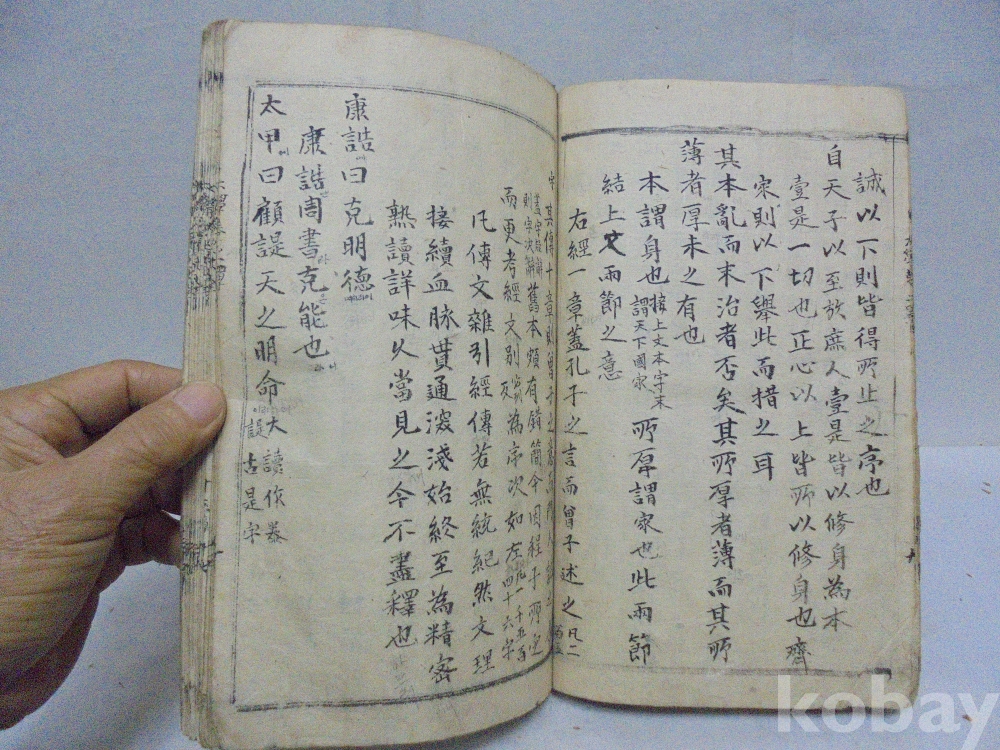 誠以下則皆得所止之序也
自天子以至於庶人壹是皆以修身為本
壹是一切也正心以上皆所以修身也齊
家則以下舉此而措之耳
其本亂而末治者否矣其所厚者薄而其所
薄者厚未之有也
本謂身也接上文本字末謂天下國家所厚謂家也此兩節
結上文兩節之意
右經一章蓋孔子之言而曾子述之凡二
其傳十章則曾子之意
舊本頗有錯簡今因程子所定
而更考經文別為序次如左凡一千五百四十六字
凡傳文雜引經傳若無統紀然文理
接續血脉貫通深淺始終至為精密
熟讀詳味久當見之今不盡釋也
康誥曰克明德
康誥周書克能也
太甲曰顧諟天之明命大讀作泰諟古是字
kobay